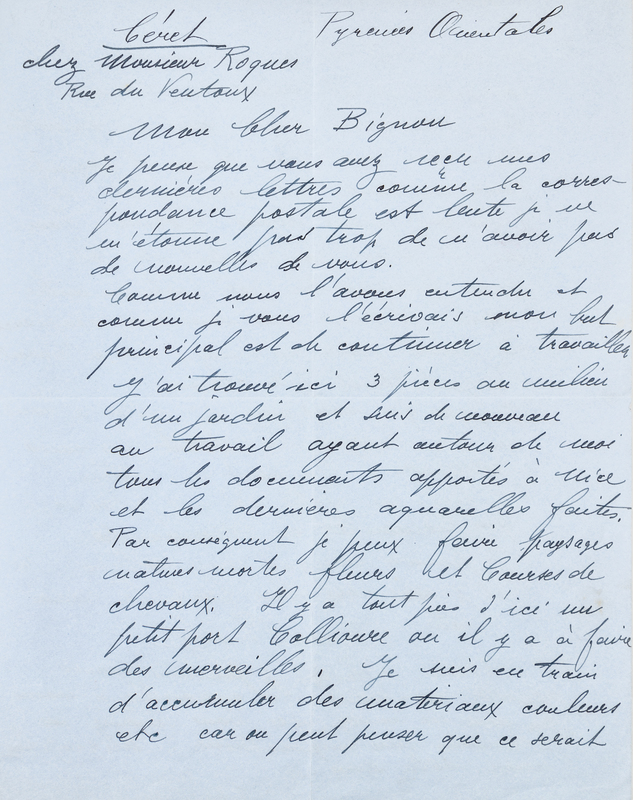 Céret Pyrénées Orientales
chez Monsieur Roques
Rue du Ventoux
Mon Cher Bignou
Je pense que vous avez reçu mes
dernières lettres comme la corres-
pondance postale est lente je ne
m'étonne pas trop de n'avoir pas
de nouvelles de vous.
Comme nous l'avons entendu et
comme je vous l'écrivais mon but
principal est de continuer à travailler
J'ai trouvé ici 3 pièces au milieu
d'un jardin et suis de nouveau
au travail ayant autour de moi
tous les documents apportés à Nice
et les dernières aquarelles faites.
Par conséquent je peux faire paysages
natures mortes fleurs et Courses de
chevaux. Il y a tout près d'ici un
petit port Collioure ou il y a à faire
des merveilles. Je suis en train
d'accumuler des materiaux couleurs
etc car on peut penser que ce serait